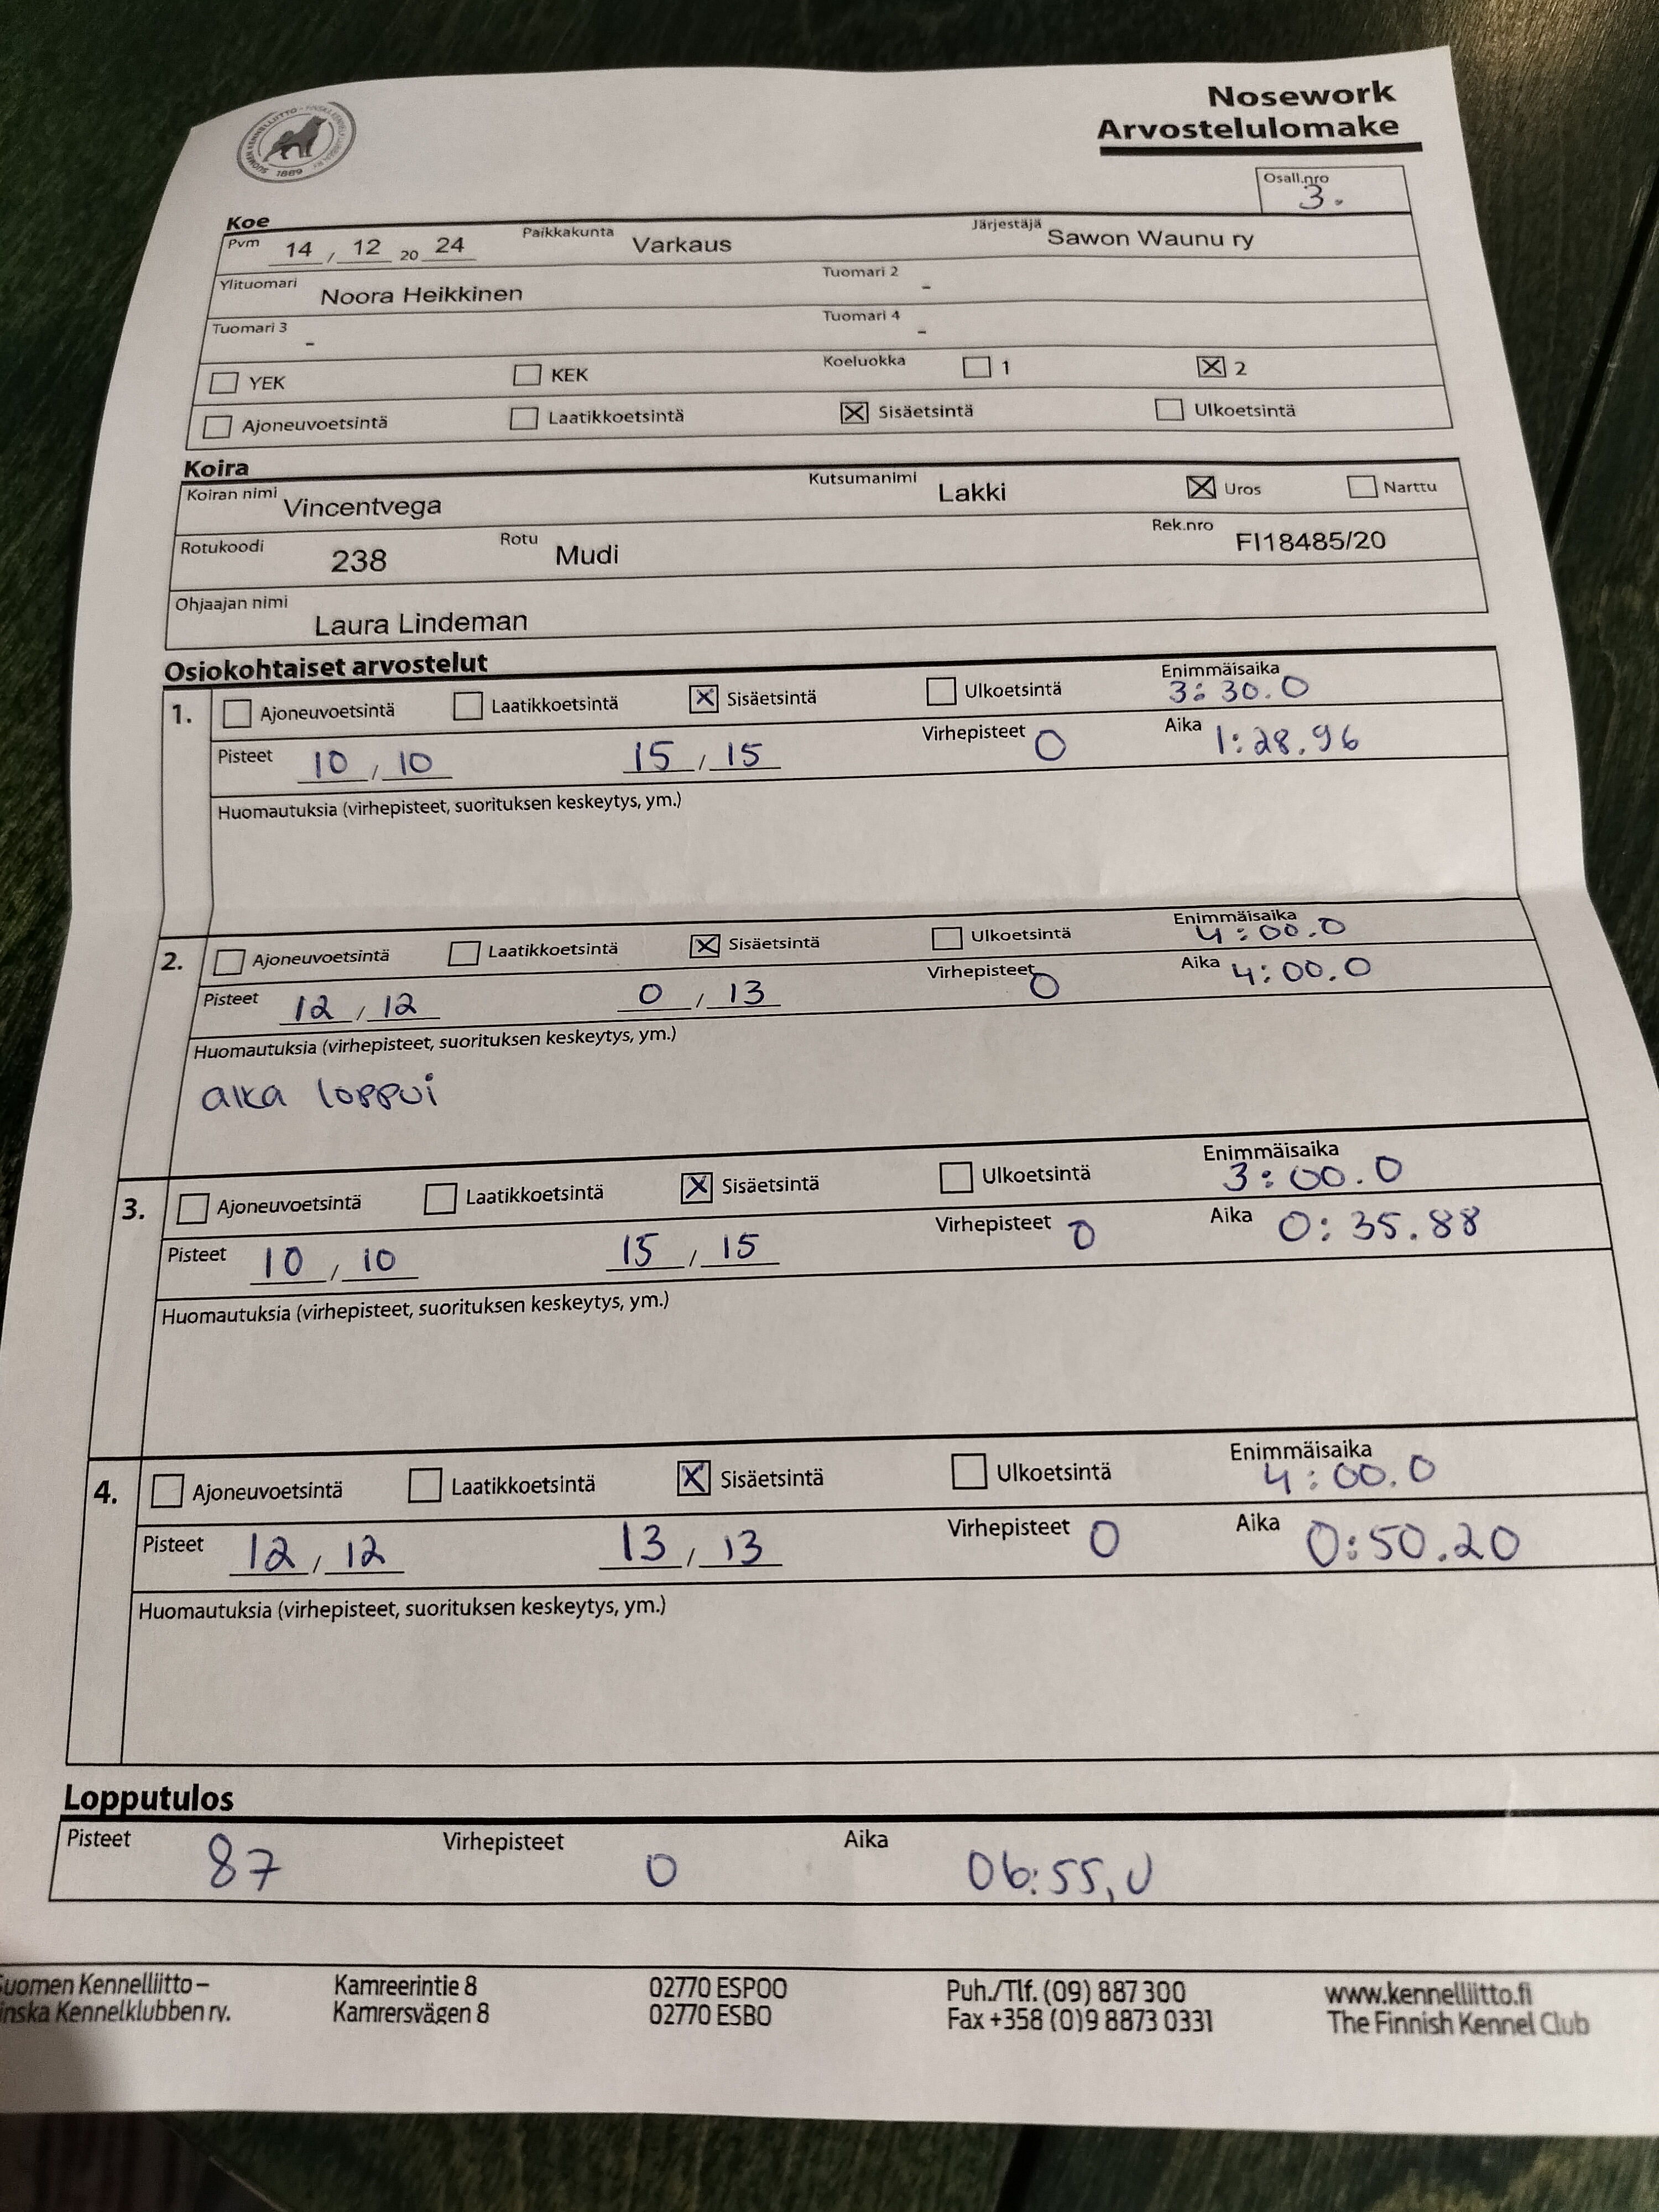 Nosework
Arvostelulomake
SUOMEN KENNELLIITTO - FINSKA KENNELKLUBBEN RY
1889
Osall.nro 3.
Koe
Pvm 14 / 12 20 24 Paikkakunta Varkaus Järjestäjä Sawon Waunu ry
Ylituomari Noora Heikkinen Tuomari 2 -
Tuomari 3 - Tuomari 4 -
☐ YEK ☐ KEK Koeluokka ☐ 1 ☒ 2
☐ Ajoneuvoetsintä ☐ Laatikkoetsintä ☒ Sisäetsintä ☐ Ulkoetsintä
Koira
Koiran nimi Vincentvega Kutsumanimi Lakki ☒ Uros ☐ Narttu
Rotukoodi 238 Rotu Mudi Rek.nro FI18485/20
Ohjaajan nimi Laura Lindeman
Osiokohtaiset arvostelut
1. ☐ Ajoneuvoetsintä ☐ Laatikkoetsintä ☒ Sisäetsintä ☐ Ulkoetsintä Enimmäisaika 3:30.0
Pisteet 10 / 10 15 / 15 Virhepisteet 0 Aika 1:28.96
Huomautuksia (virhepisteet, suorituksen keskeytys, ym.)
2. ☐ Ajoneuvoetsintä ☐ Laatikkoetsintä ☒ Sisäetsintä ☐ Ulkoetsintä Enimmäisaika 4:00.0
Pisteet 12 / 12 0 / 13 Virhepisteet 0 Aika 4:00.0
Huomautuksia (virhepisteet, suorituksen keskeytys, ym.)
aika loppui
3. ☐ Ajoneuvoetsintä ☐ Laatikkoetsintä ☒ Sisäetsintä ☐ Ulkoetsintä Enimmäisaika 3:00.0
Pisteet 10 / 10 15 / 15 Virhepisteet 0 Aika 0:35.88
Huomautuksia (virhepisteet, suorituksen keskeytys, ym.)
4. ☐ Ajoneuvoetsintä ☐ Laatikkoetsintä ☒ Sisäetsintä ☐ Ulkoetsintä Enimmäisaika 4:00.0
Pisteet 12 / 12 13 / 13 Virhepisteet 0 Aika 0:50.20
Huomautuksia (virhepisteet, suorituksen keskeytys, ym.)
Lopputulos
Pisteet 87 Virhepisteet 0 Aika 06:55,0
Suomen Kennelliitto – Kamreerintie 8 02770 ESPOO Puh./Tlf. (09) 887 300 www.kennelliitto.fi
inska Kennelklubben rv. Kamrersvägen 8 02770 ESBO Fax +358 (0)9 8873 0331 The Finnish Kennel Club